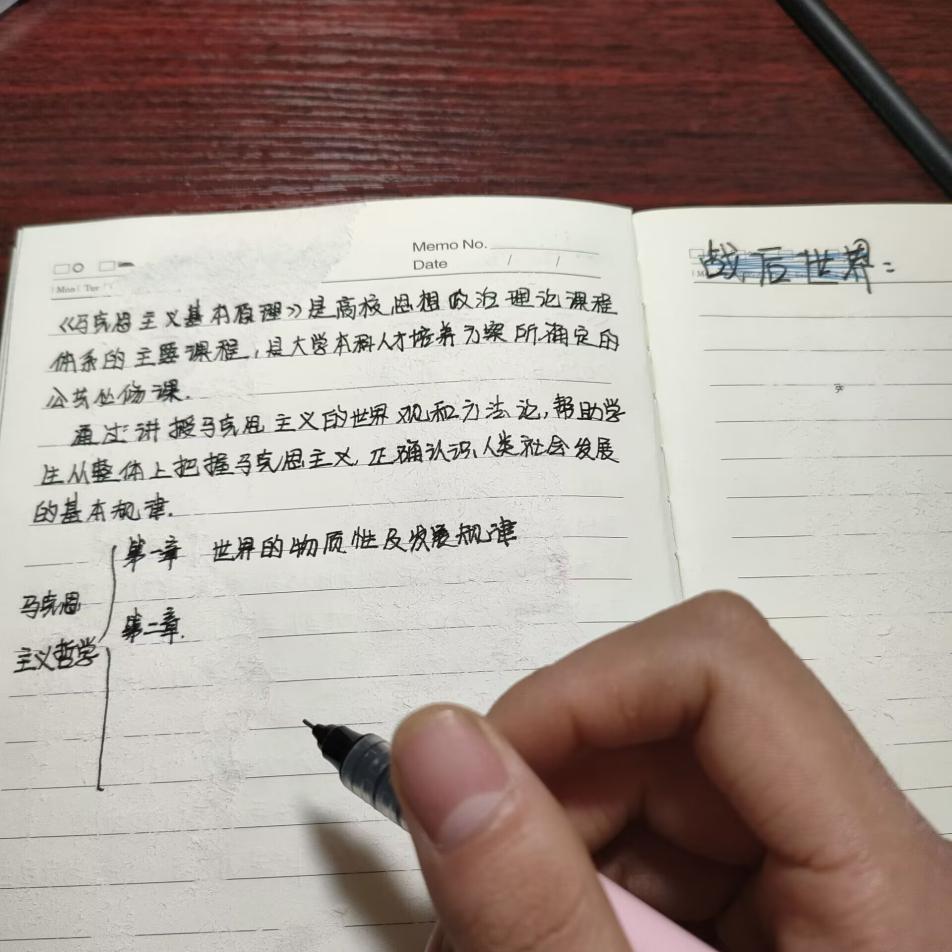 Memo No.
Date / /
Mon Tue
《马克思主义基本原理》是高校思想政治理论课程
体系的主要课程，是大学本科人才培养方案所确定的
公共必修课.
通过讲授马克思主义的世界观和方法论，帮助学
生从整体上把握马克思主义，正确认识人类社会发展
的基本规律.
第一章 世界的物质性及发展规律
马克思
第二章.
主义哲学
战后世界：